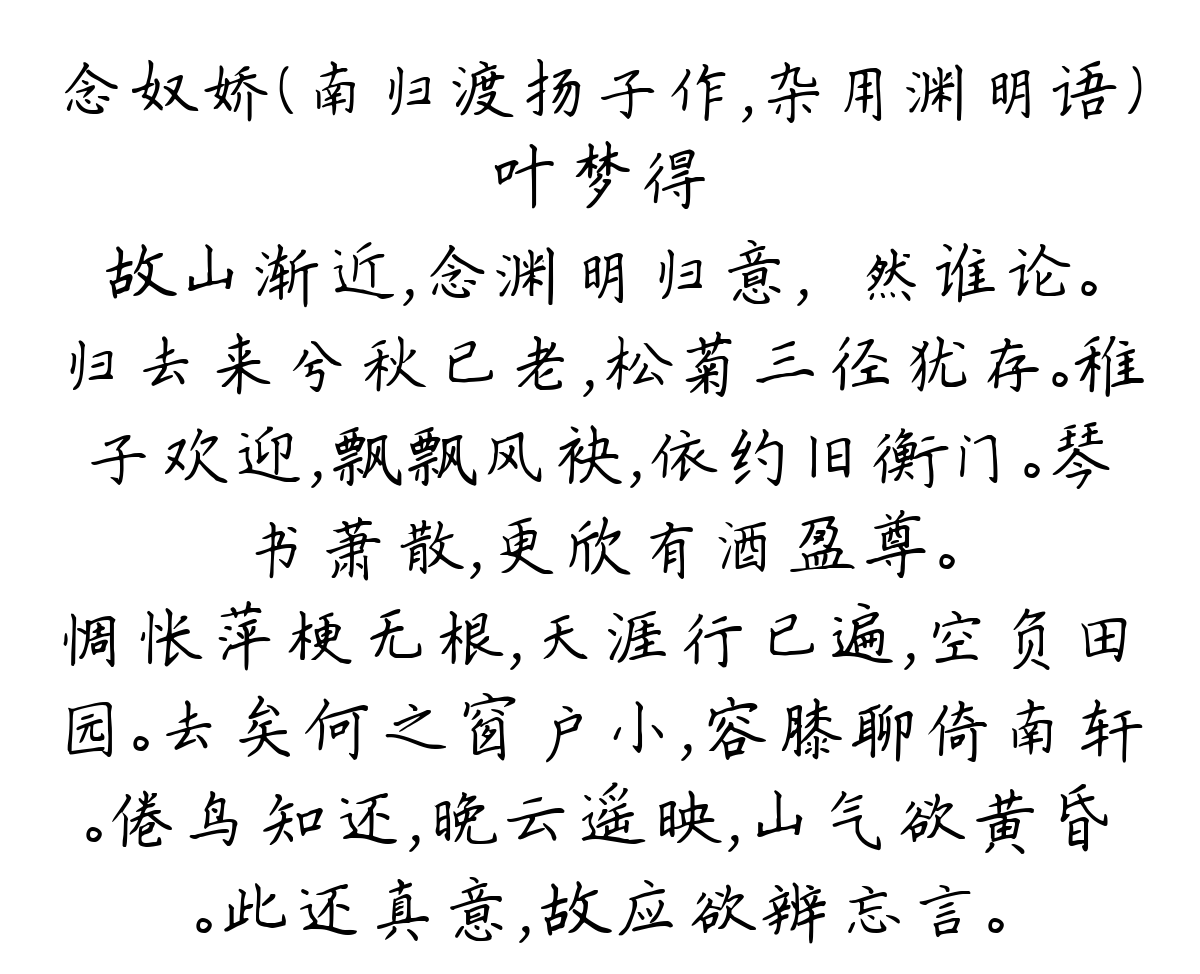 念奴娇(南归渡扬子作,杂用渊明语)
叶梦得
故山渐近,念渊明归意, 然谁论。
归去来兮秋已老,松菊三径犹存。稚
子欢迎,飘飘风袂,依约旧衡门。琴
书萧散,更欣有酒盈尊。
惆怅萍梗无根,天涯行已遍,空负田
园。去矣何之窗户小,容膝聊倚南轩
。倦鸟知还,晚云遥映,山气欲黄昏
。此还真意,故应欲辨忘言。